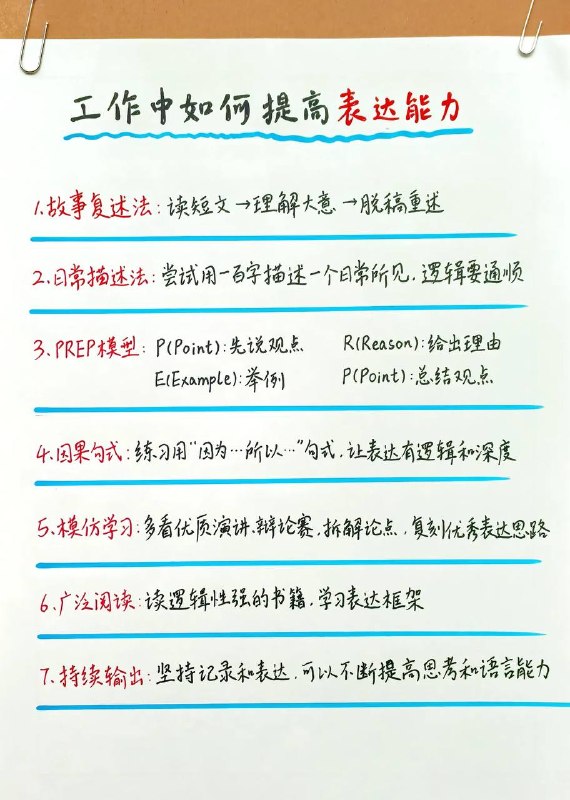 工作中如何提高表达能力
1.故事复述法:读短文→理解大意→脱稿重述
2.日常描述法:尝试用一百字描述一个日常所见,逻辑要通顺
3.PREP模型:P(Point):先说观点 R(Reason):给出理由
E(Example):举例 P(Point):总结观点
4.因果句式:练习用"因为…所以…"句式,让表达有逻辑和深度
5.模仿学习:多看优质演讲、辩论赛,拆解论点,复刻优秀表达思路
6.广泛阅读:读逻辑性强的书籍,学习表达框架
7.持续输出:坚持记录和表达,可以不断提高思考和语言能力